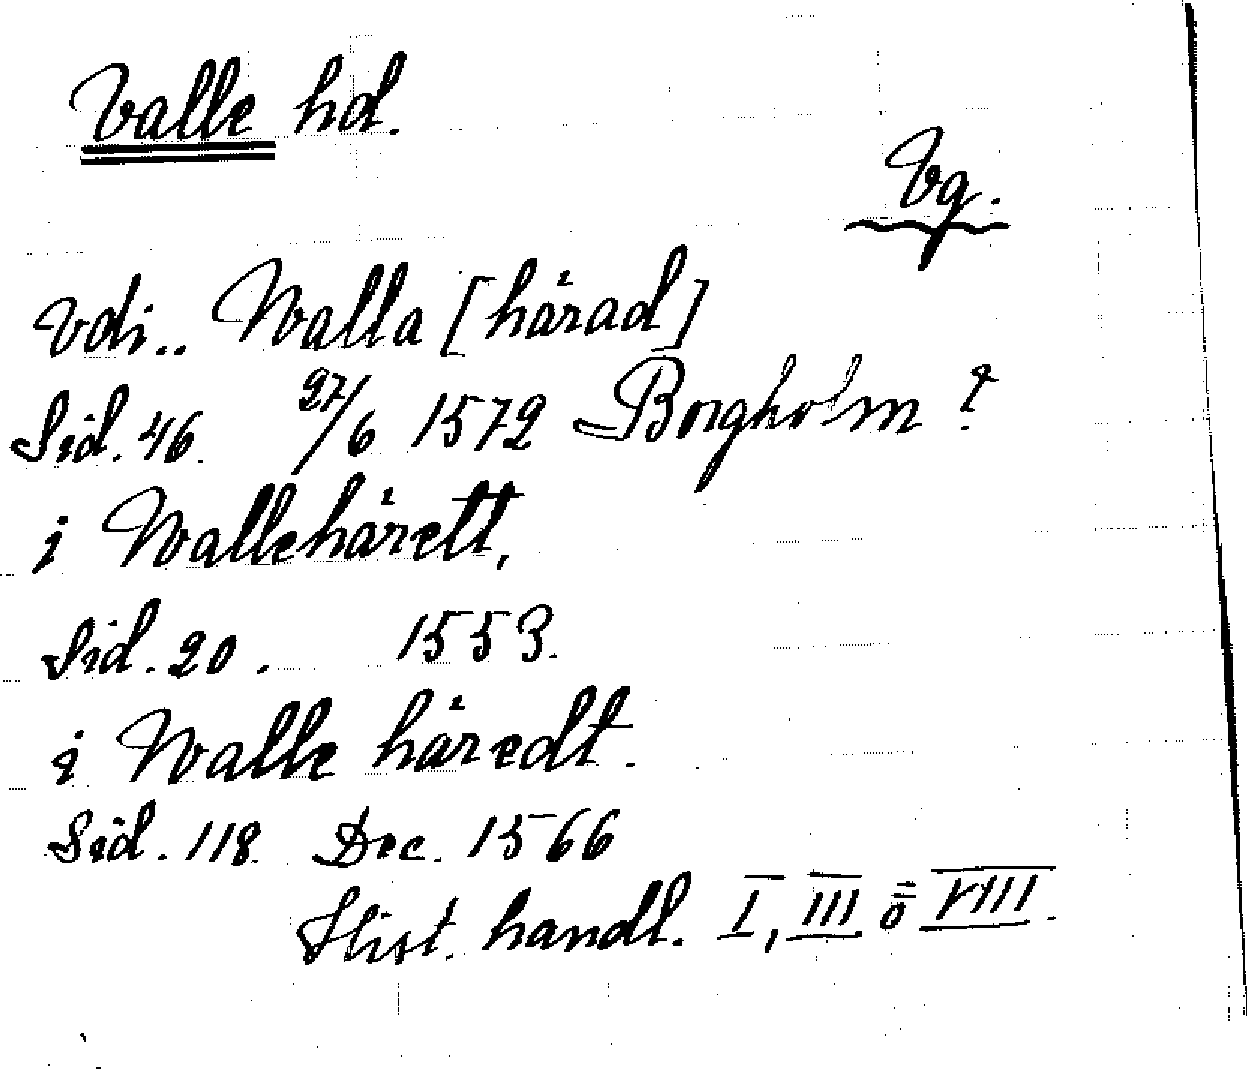 Valle hd.
Vg.
Vdi.. Walla [härad]
Sid. 46. 27/6 1572 Borgholm?
i Wallehärett,
Sid. 20. 1553.
i Walle häredt.
Sid. 118. Dec. 1566
Hist. handl. I, III o VIII.